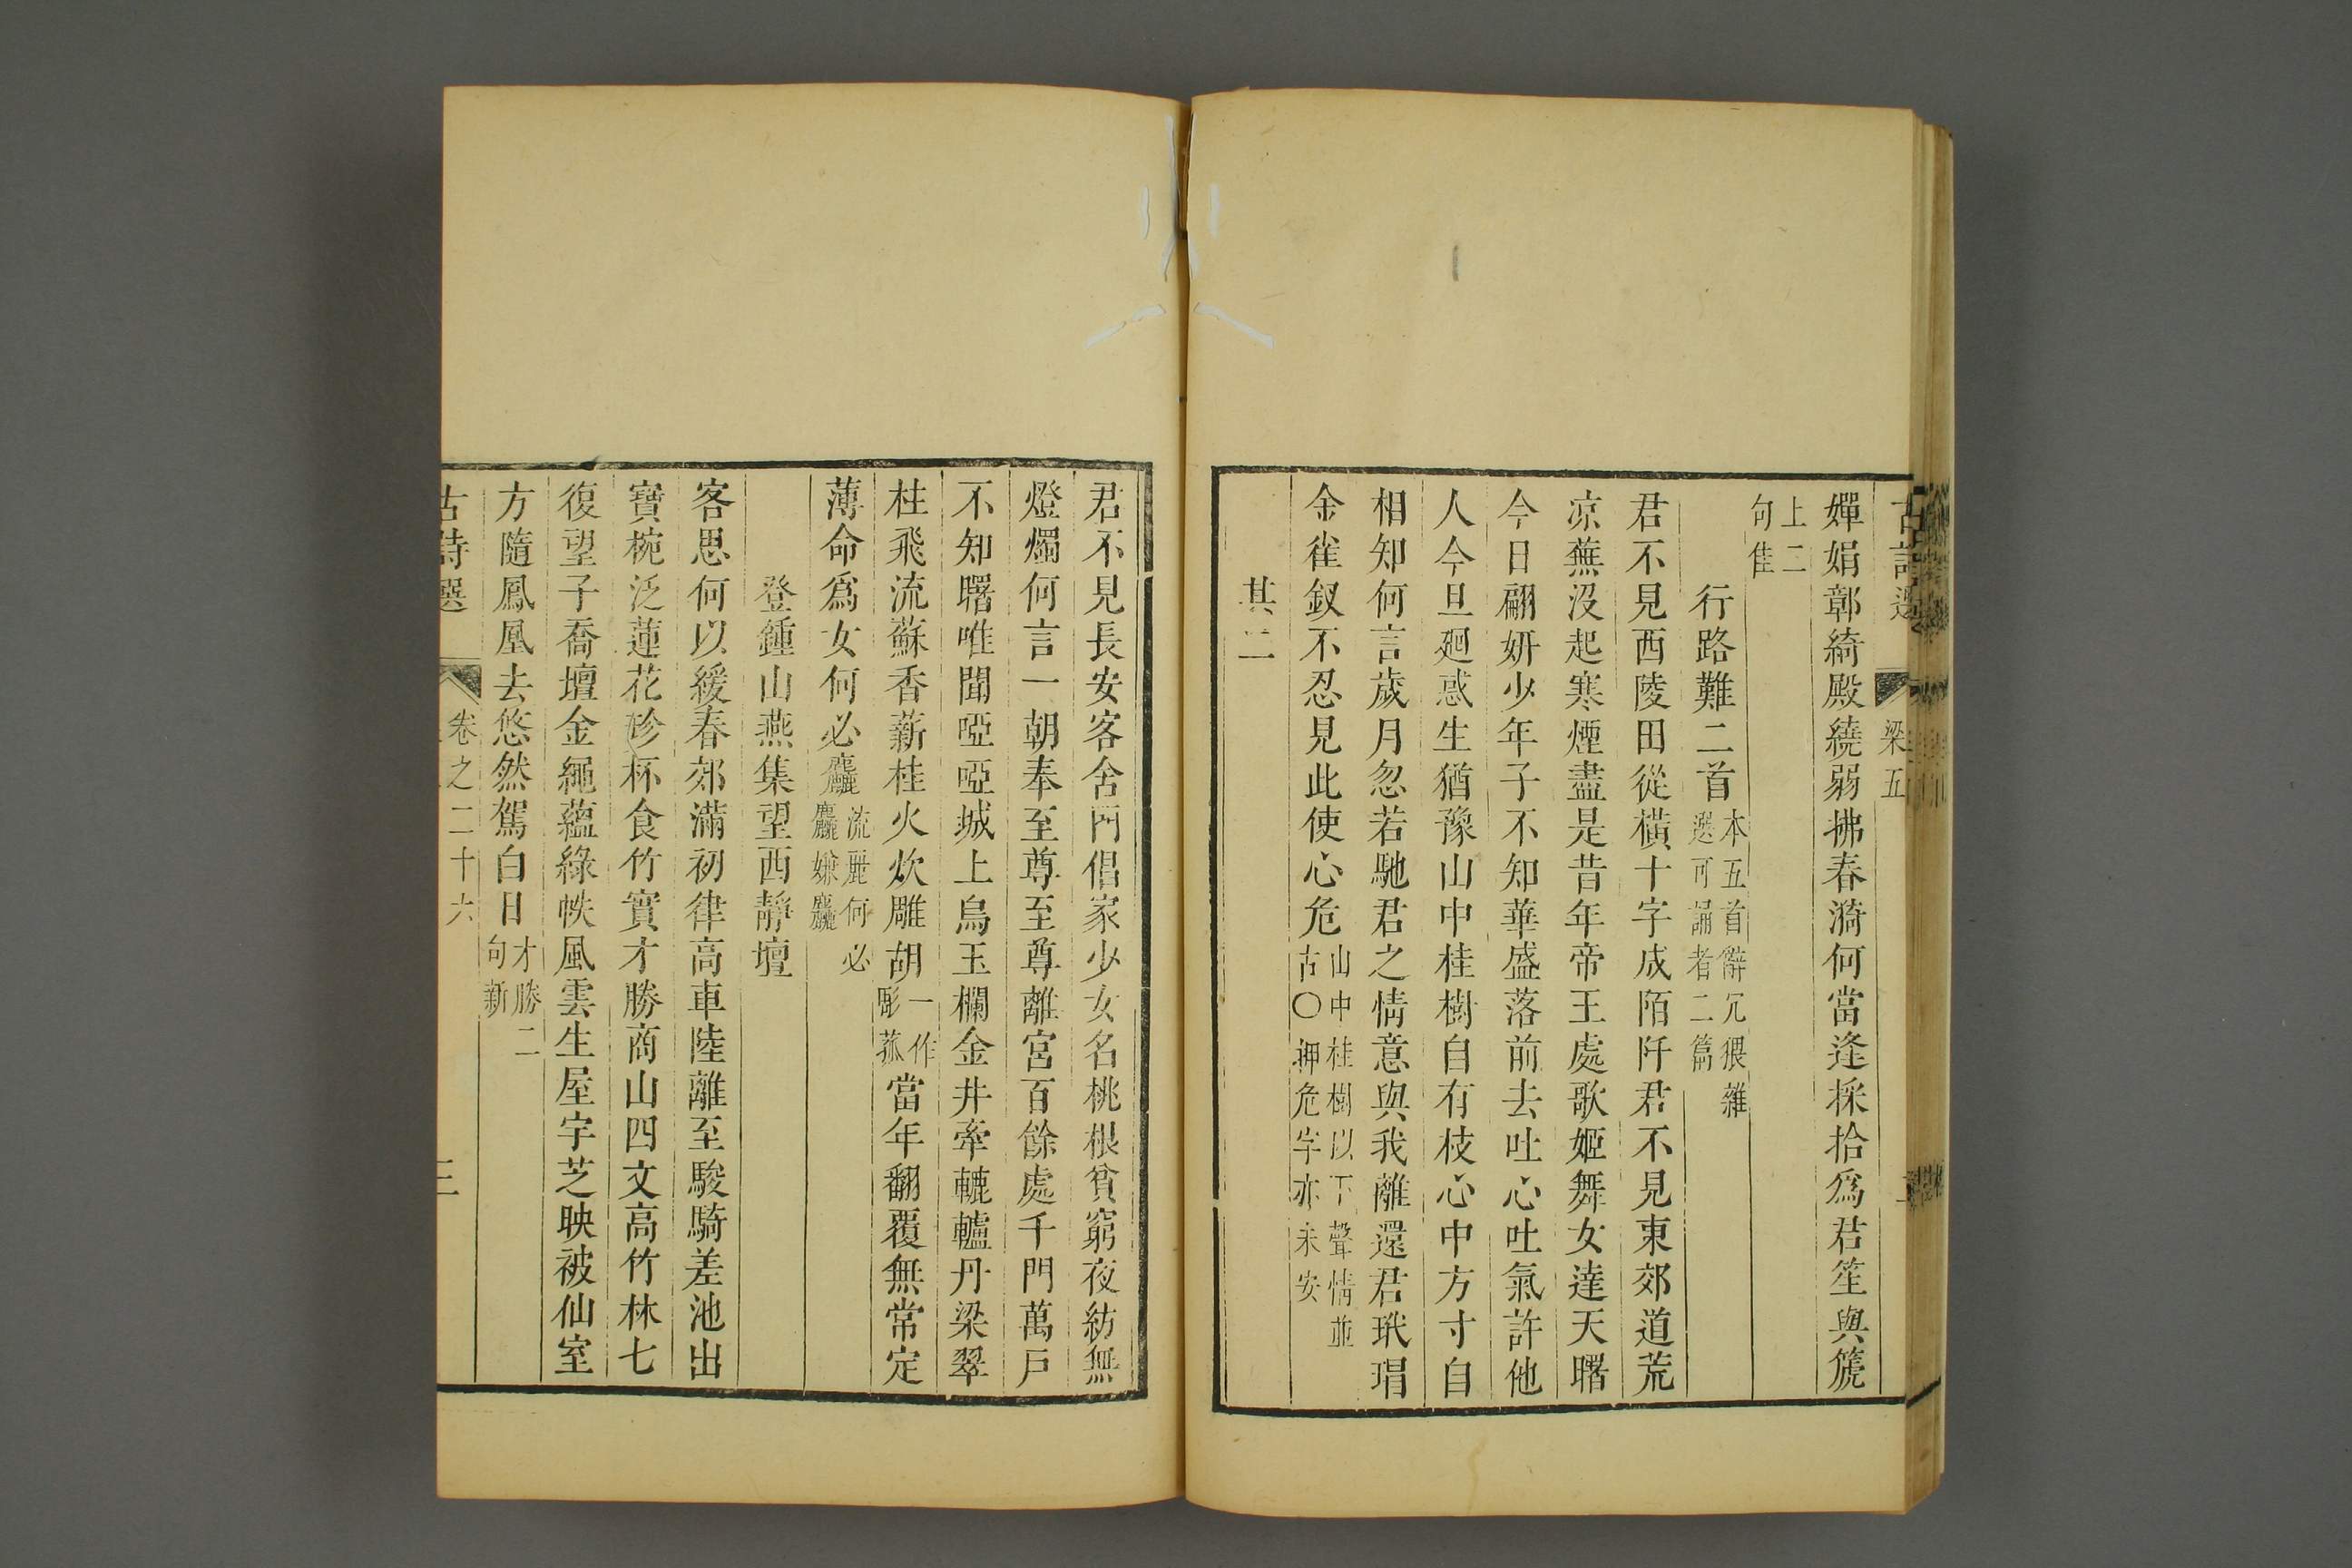 古詩選 梁五
嬋娟鄣綺殿繞弱拂春漪何當逢採拾爲君笙與篪
上二
句佳
行路難二首本五首辭冗猥雜
選可誦者二篇
君不見西陵田從橫十字成陌阡君不見東郊道荒
凉蕪沒起寒煙盡是昔年帝王處歌姬舞女達天曙
今日翩妍少年子不知華盛落前去吐心吐氣許他
人今旦廻惑生猶豫山中桂樹自有枝心中方寸自
相知何言歲月忽若馳君之情意與我離還君玳瑁
金雀釵不忍見此使心危山中桂樹以下聲情並
古〇押危字亦未安
其二
君不見長安客舍門倡家少女名桃根貧窮夜紡無
燈燭何言一朝奉至尊至尊離宮百餘處千門萬戶
不知曙唯聞啞啞城上烏玉欄金井牽轆轤丹梁翠
柱飛流蘇香薪桂火炊雕胡一作
彫菰當年翻覆無常定
薄命爲女何必麤流麗何必
麤嫌麤
登鍾山燕集望西靜壇
客思何以緩春郊滿初律高車陸離至駿騎差池出
寶椀泛蓮花珍杯食竹實才勝商山四文高竹林七
復望子喬壇金繩蘊綠帙風雲生屋宇芝映被仙室
方隨鳳凰去悠然駕白日才勝二
句新
古詩選 卷之二十六 三